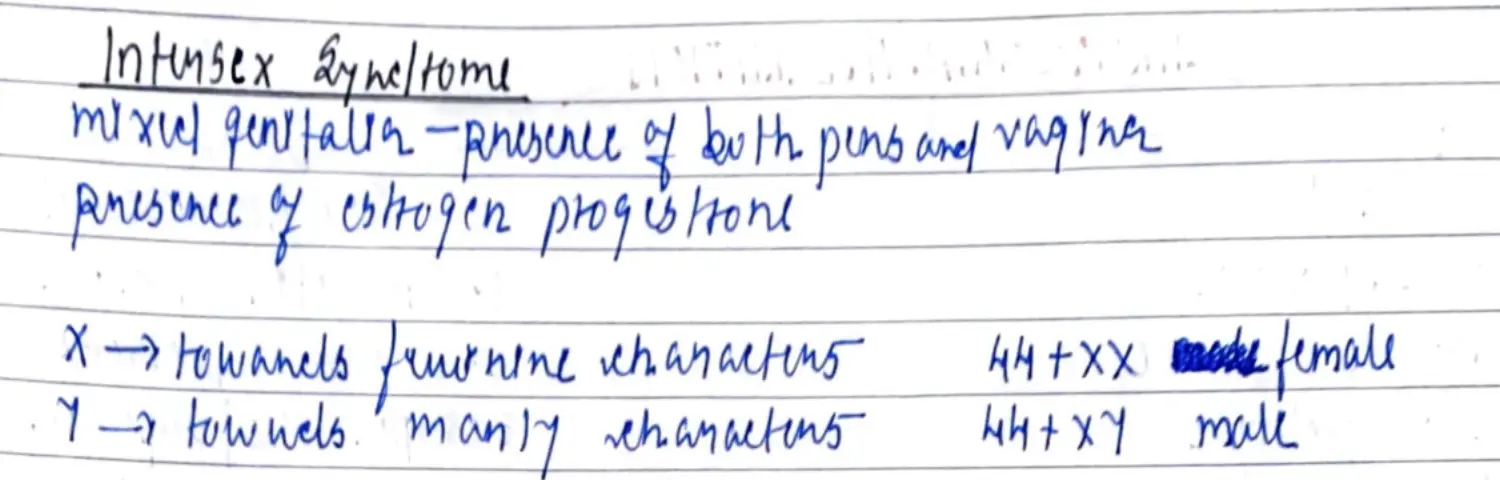 Intersex Syndrome
mixed genitalia – presence of both penis and vagina
presence of estrogen progestrone
X → towards feminine characters 44+XX female
Y → towards manly characters 44+XY male